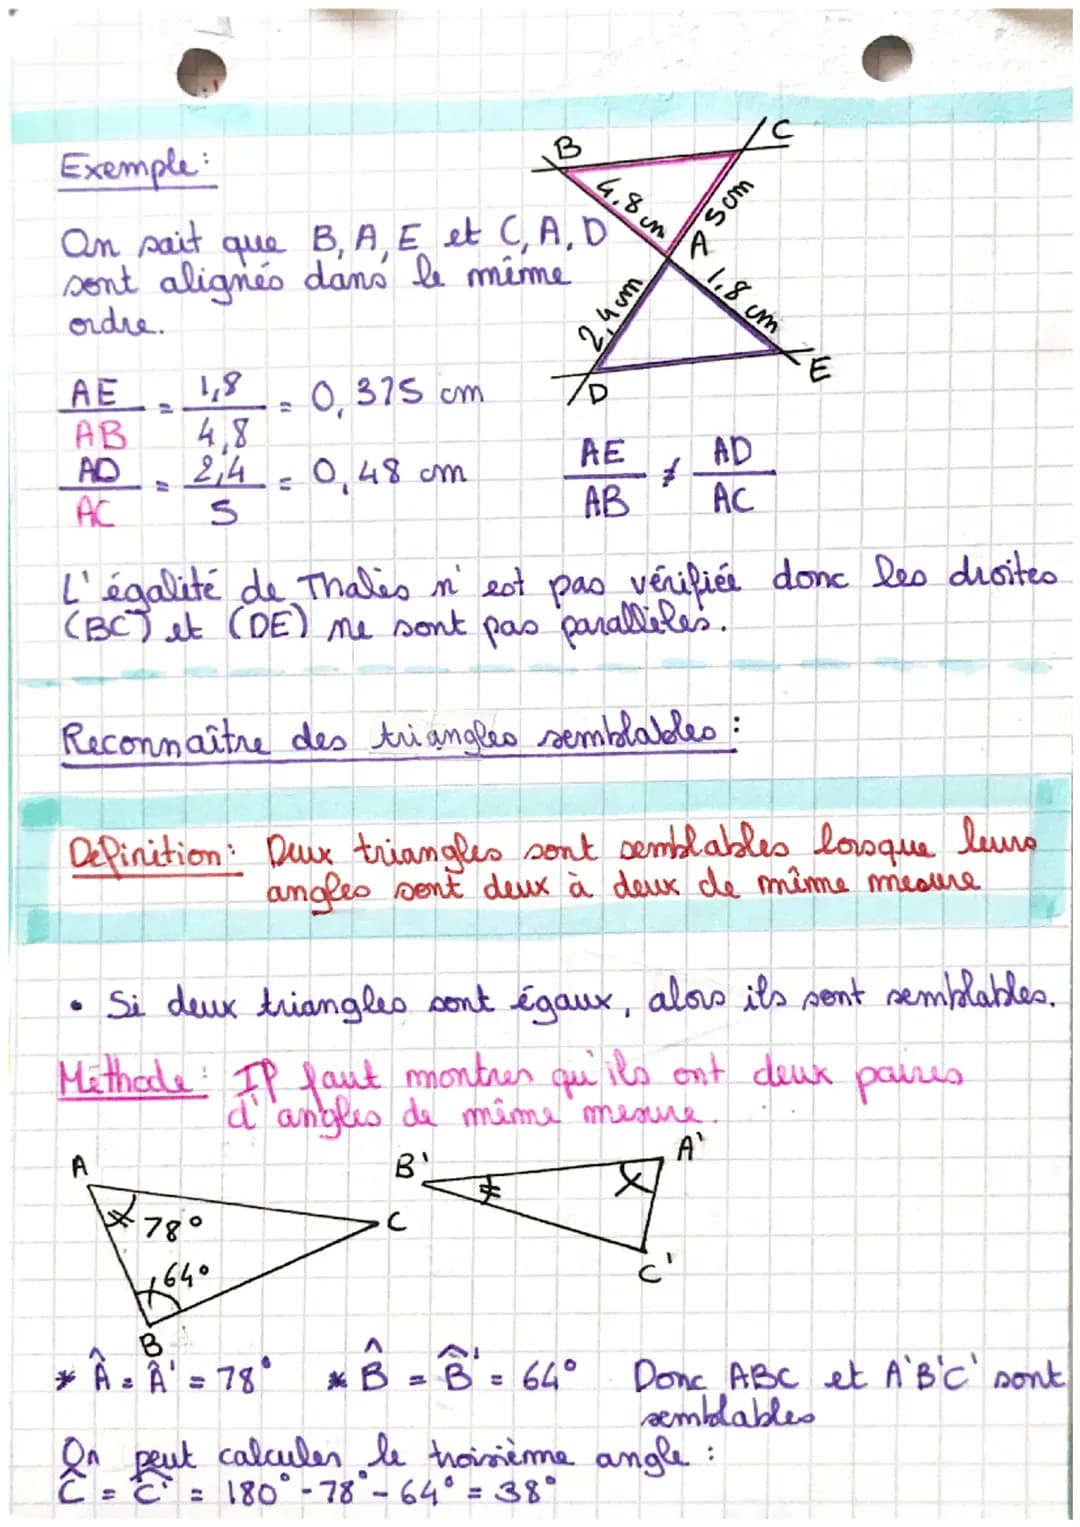 Exemple:
B
C
4,8 cm
5 cm
A
On sait que B, A, E et C, A, D
sont alignés dans le même
ordre.
2,4 cm
1,8 cm
D
E
AE/AB = 1,8/4,8 = 0,375 cm
AD/AC = 2,4/5 = 0,48 cm
AE/AB ≠ AD/AC
L'égalité de Thalès n'est pas vérifiée donc les droites
(BC) et (DE) ne sont pas parallèles.
Reconnaître des triangles semblables:
Definition: Deux triangles sont semblables lorsque leurs
angles sont deux à deux de même mesure
• Si deux triangles sont égaux, alors ils sont semblables.
Méthode: Il faut montrer qu'ils ont deux paires
d'angles de même mesure.
A
78°
64°
B
C
B'
A'
C'
* Â = Â' = 78° * B̂ = B̂' = 64° Donc ABC et A'B'C' sont
semblables
On peut calculer le troisième angle:
Ĉ = Ĉ' = 180° - 78° - 64° = 38°